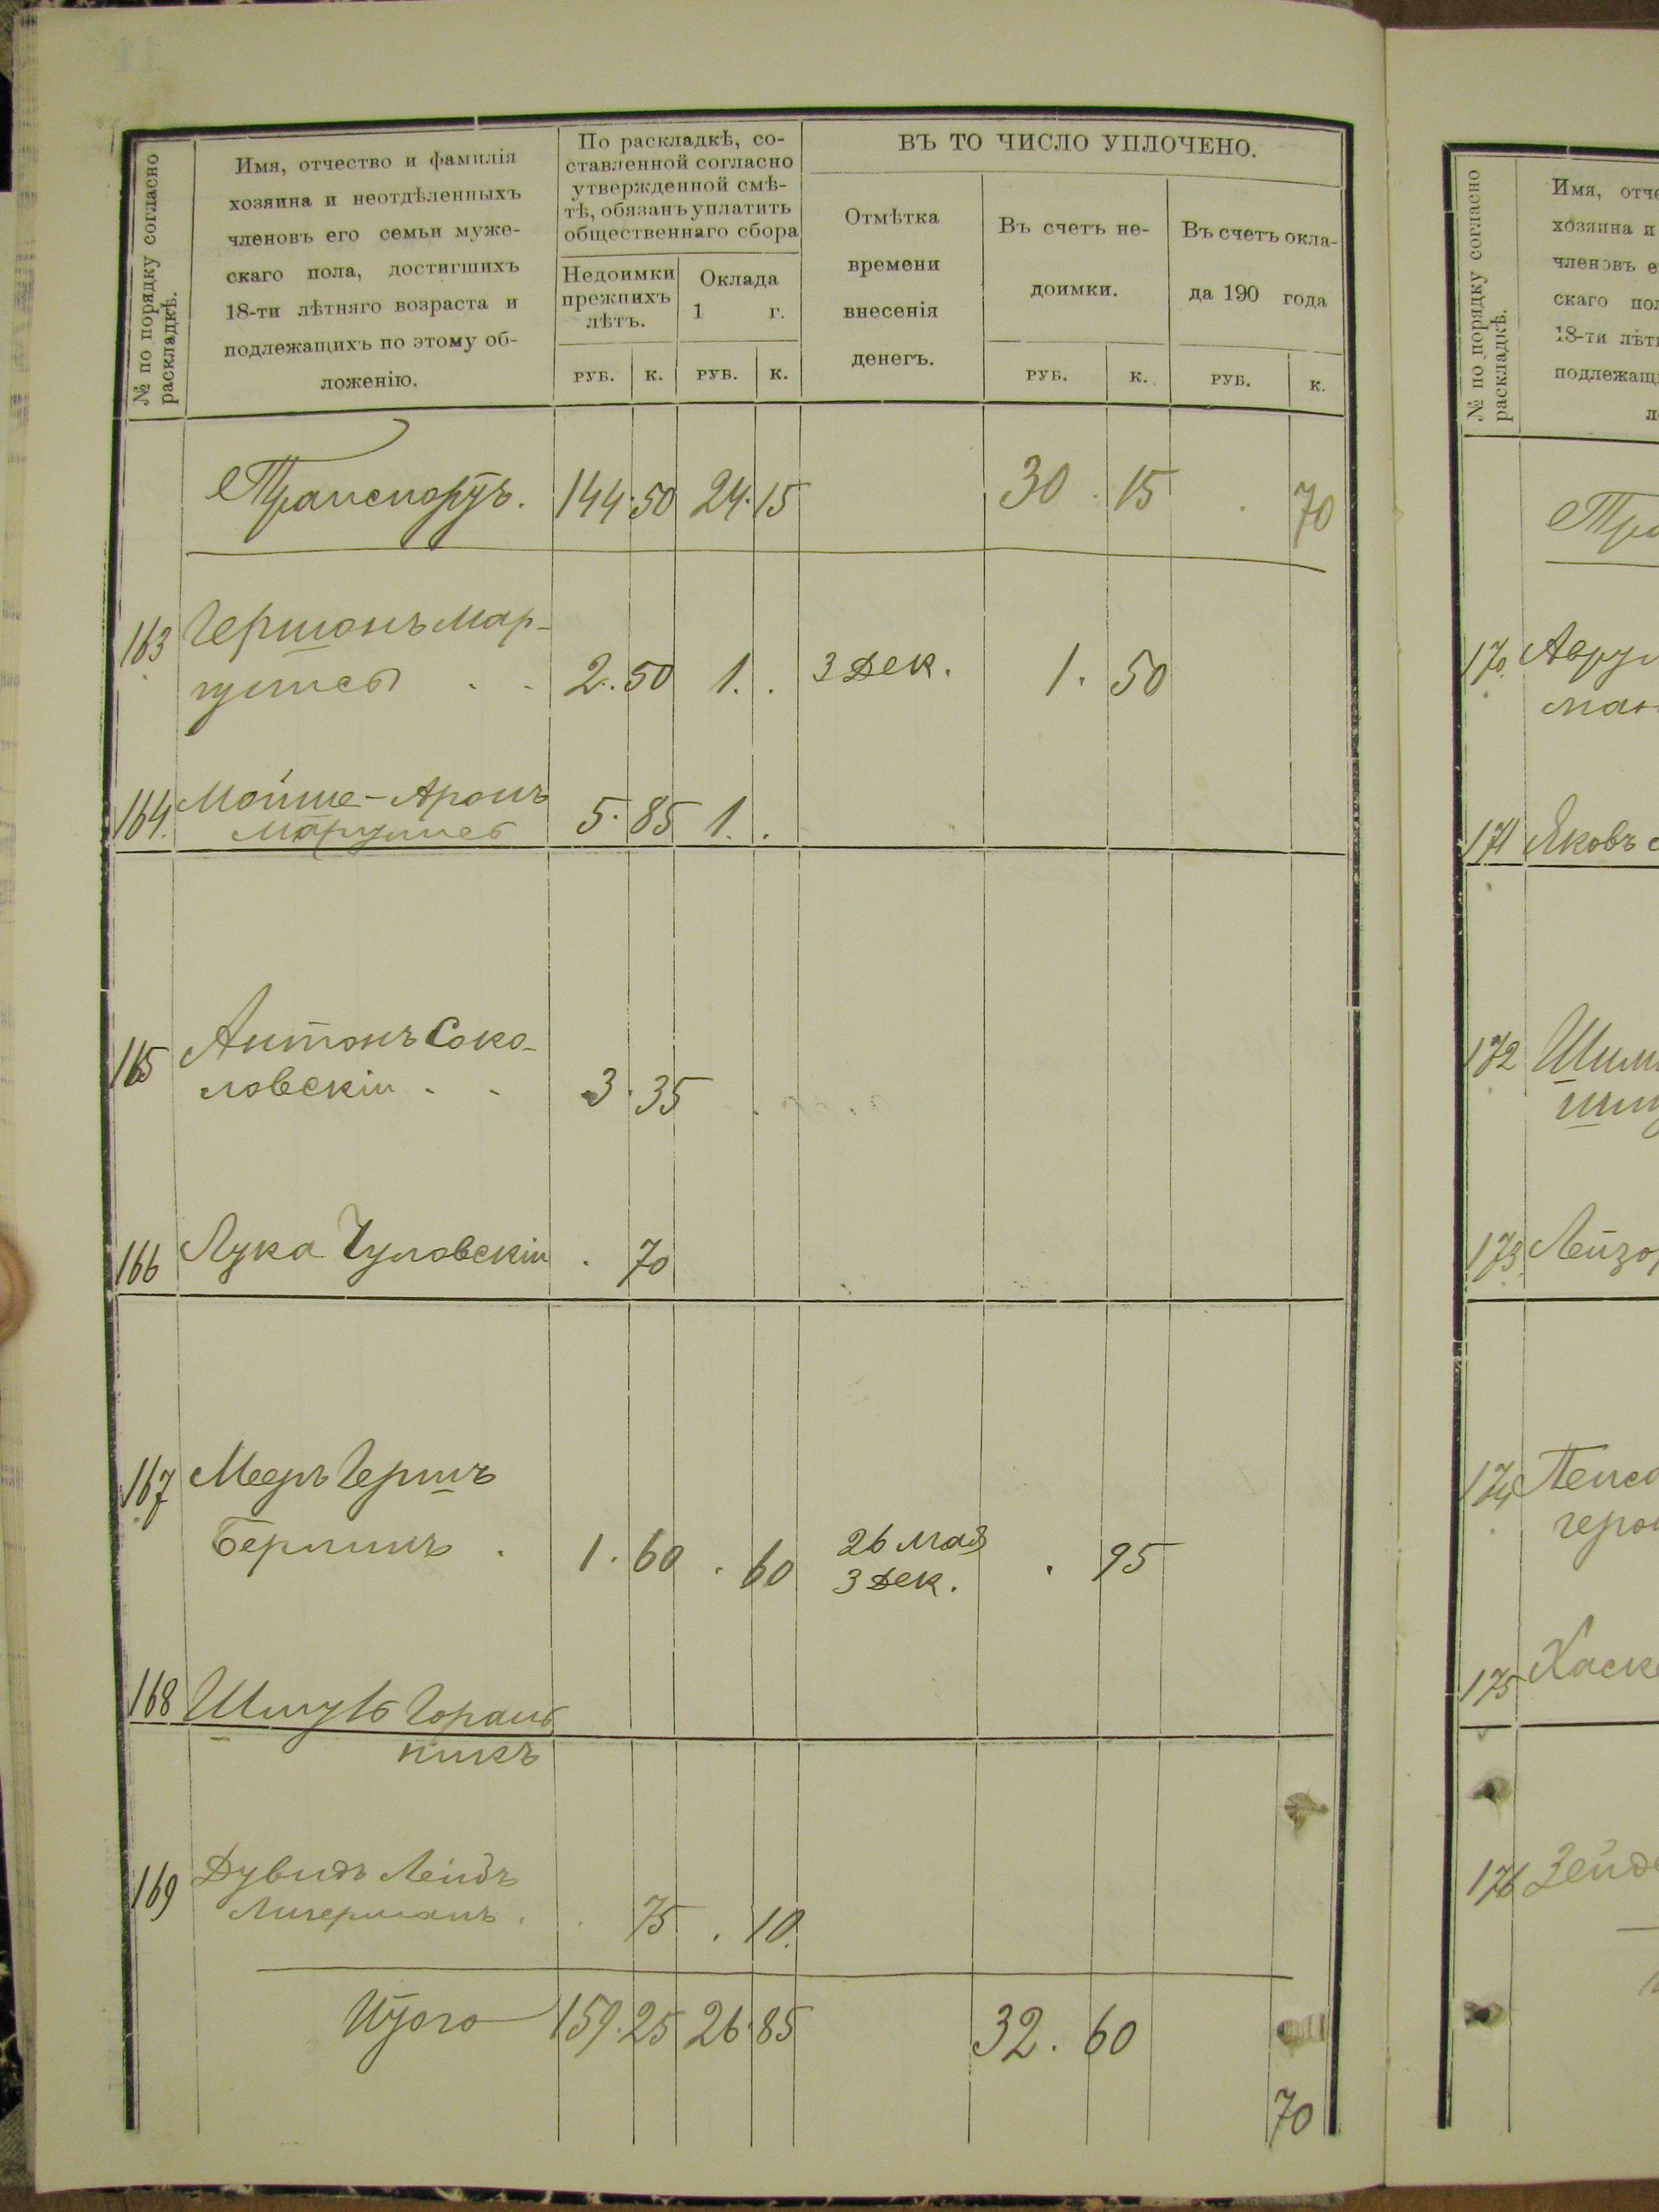 № по порядку согласно
раскладкѣ.
Имя, отчество и фамилія
хозяина и неотдѣленныхъ
членовъ его семьи муже-
скаго пола, достигшихъ
18-ти лѣтняго возраста и
подлежащихъ по этому об-
ложенію.
По раскладкѣ, со-
ставленной согласно
утвержденной смѣ-
тѣ, обязанъ уплатить
общественнаго сбора
Недоимки
прежнихъ
лѣтъ.
Оклада
1 г.
РУБ. К. РУБ. К.
ВЪ ТО ЧИСЛО УПЛОЧЕНО.
Отмѣтка
времени
внесенія
денегъ.
Въ счетъ не-
доимки.
Въ счетъ окла-
да 190 года
РУБ. К. РУБ. К.
Транспортъ. 144. 50 24. 15 30. 15 . 70
163 Гершонъ Мар-
гулисъ . . 2. 50 1. . 3 Дек. 1. 50
164. Мойше-Аронъ
Маргулисъ 5. 85 1. .
165 Антонъ Соко-
ловскій . . 3. 35 .
166 Лука Гуловскій . 70
167 Меерь Гершъ
Берлинъ . 1. 60 . 60 26 Мая . 95
3 Дек.
168 Шмуль
никъ
169 Дувидъ Лейбъ
. . 75 . 10.
Итого 159. 25 26. 85 32. 60
70
№ по порядку согласно
раскладкѣ.
Имя, отче
хозяина и
членовъ е
скаго пол
18-ти лѣт
подлежащ
л
Тра
170.
ман
171 Яковъ
172
173.
174
175 Хаске
176 Зейд